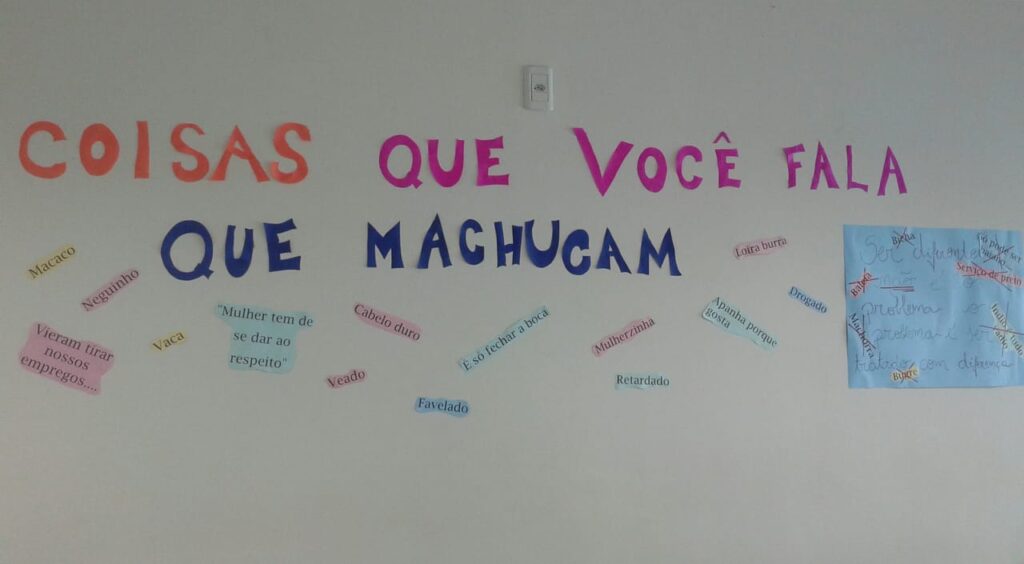 COISAS QUE VOCÊ FALA
QUE MACHUCAM
Macaco
Neguinho
Vieram tirar
nossos
empregos....
Vaca
"Mulher tem de
se dar ao
respeito"
Cabelo duro
Veado
Favelado
É só fechar a boca
Mulherzinha
Retardado
Loira burra
Apanha porque
gosta
Drogado
Ser diferente
não é o
problema o
problema é ser
tratado com diferença
Bicha
Baleia
Serviço de preto
Bugre